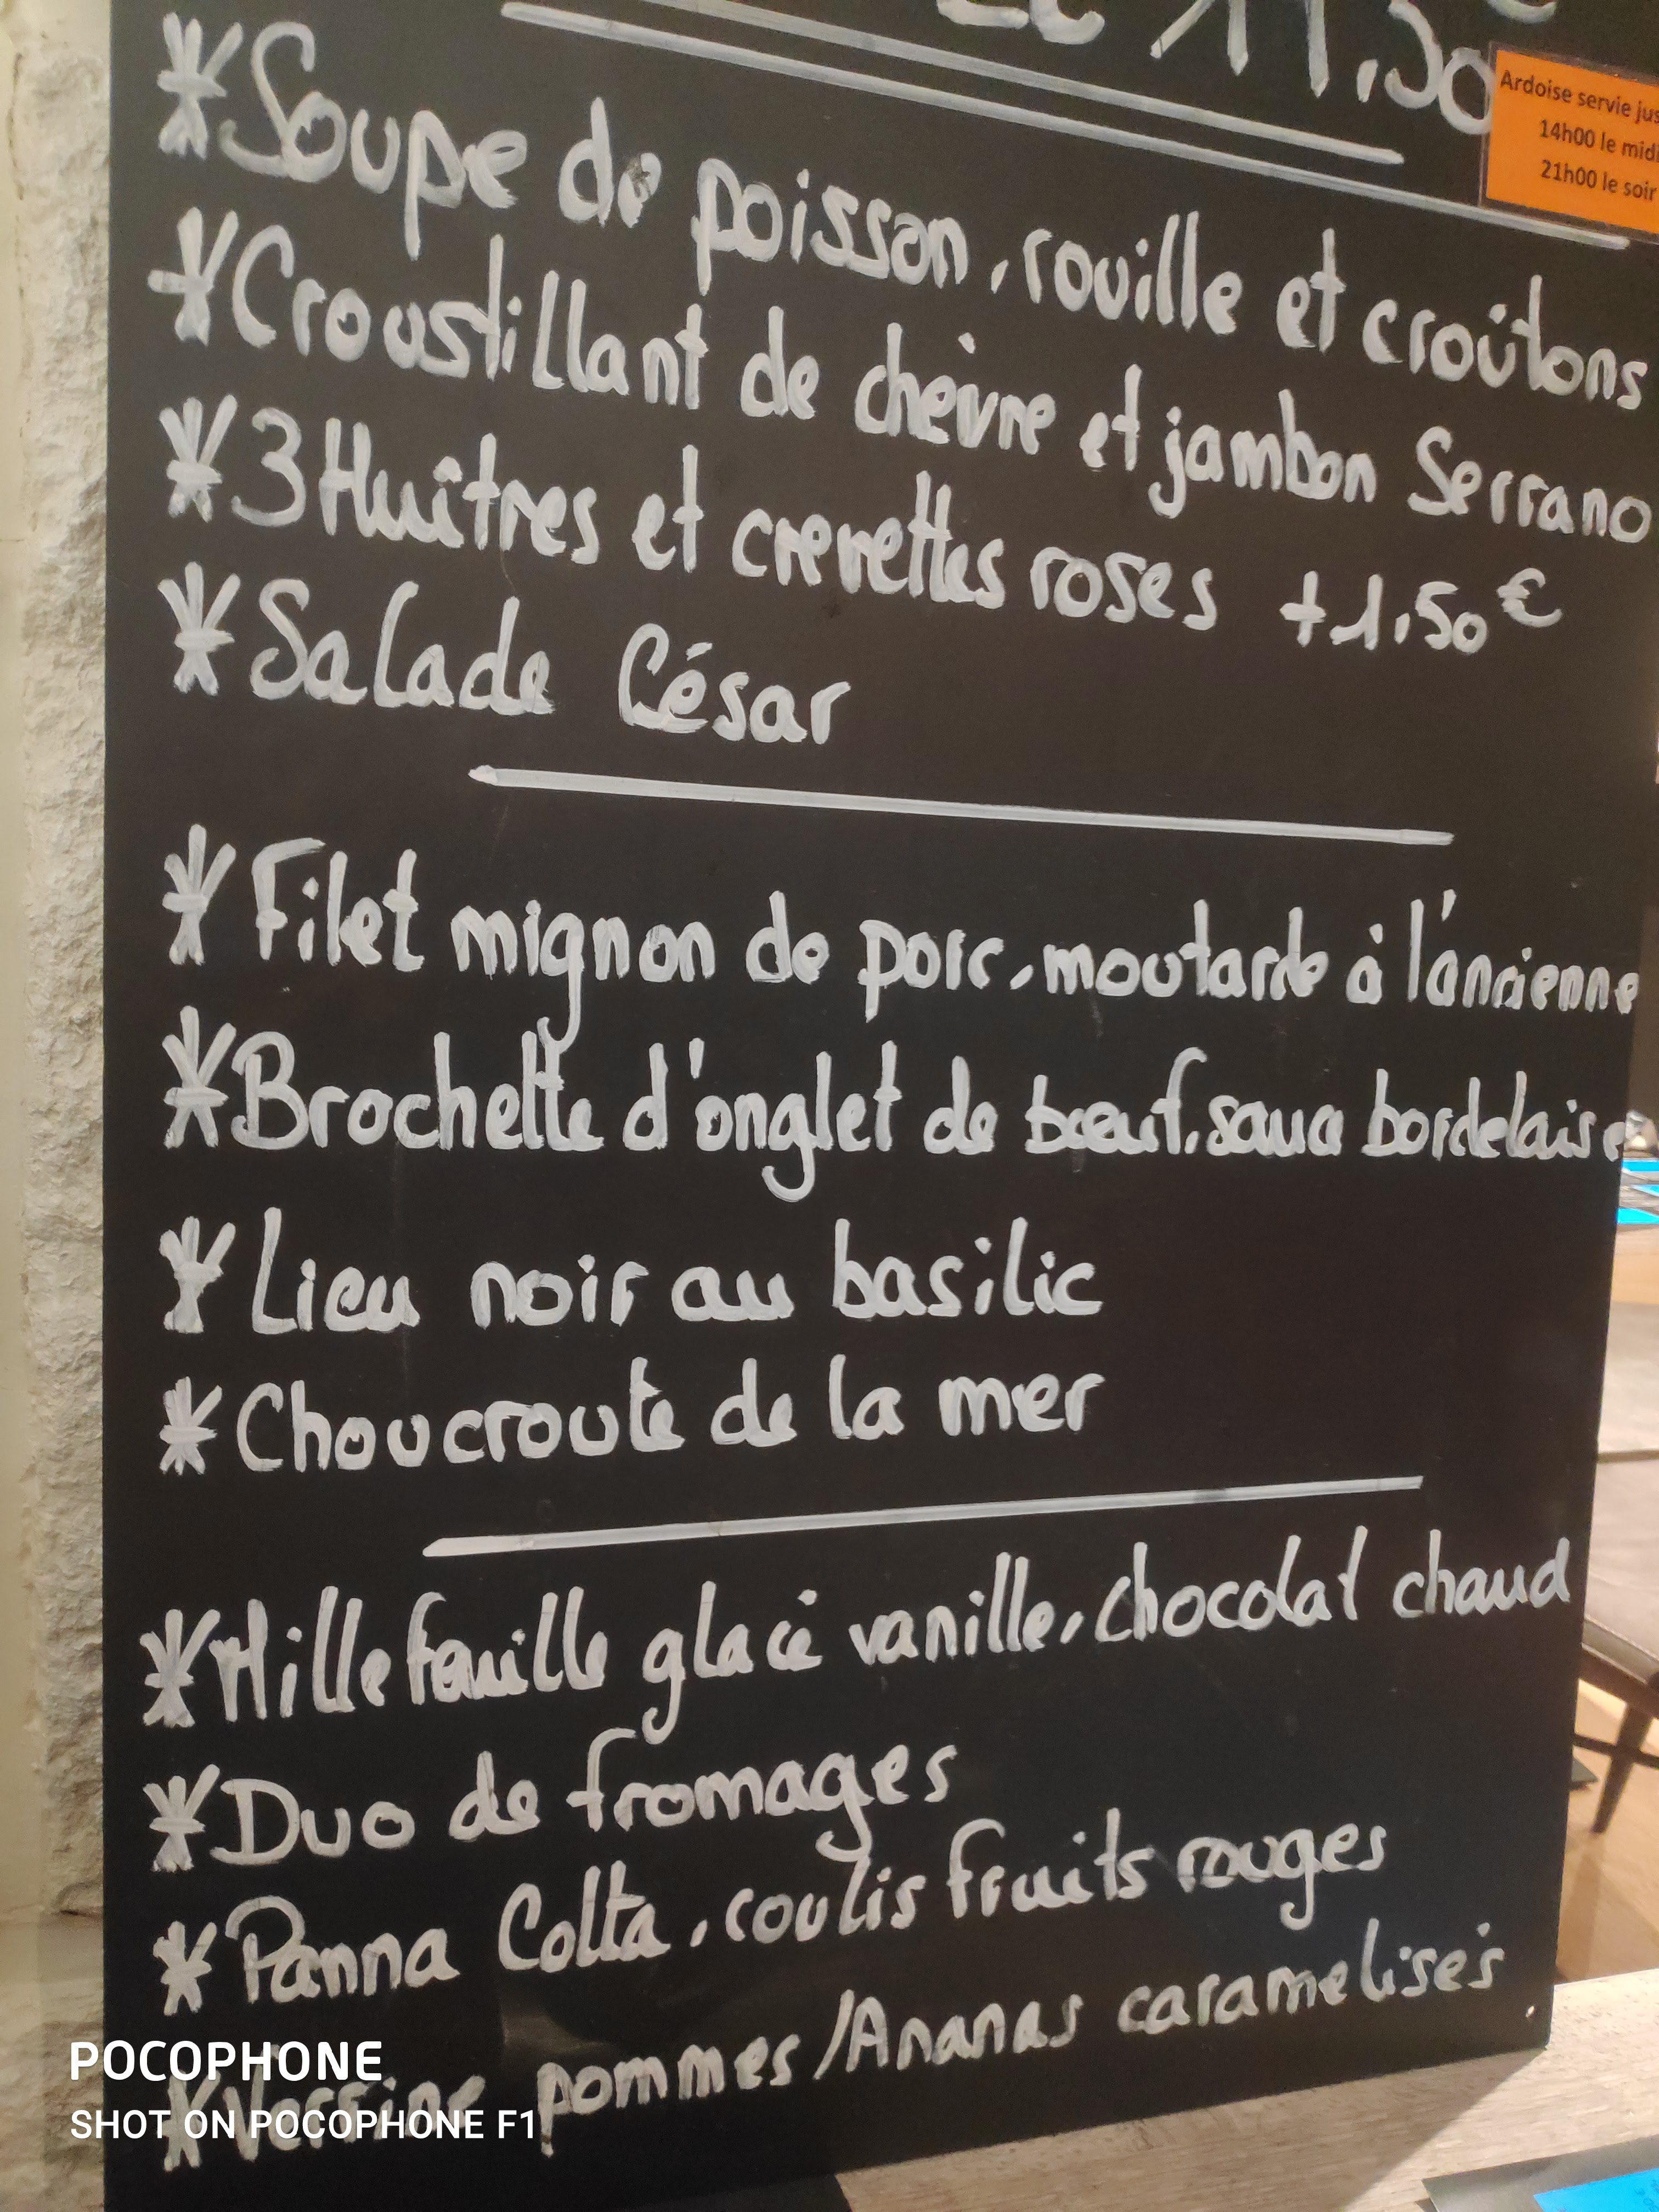 11,50
Ardoise servie jus
14h00 le midi
21h00 le soir
*Soupe de poisson, rouille et croûtons
*Croustillant de chèvre et jambon Serrano
*3 Huîtres et crevettes roses +1,50€
*Salade César
*Filet mignon de porc, moutarde à l'ancienne
*Brochette d'onglet de bœuf, sauce bordelaise
*Lieu noir au basilic
*Choucroute de la mer
*Mille feuille glacé vanille, chocolat chaud
*Duo de fromages
*Panna Cotta, coulis fruits rouges
*Verrine pommes/Ananas caramelisés
POCOPHONE
SHOT ON POCOPHONE F1